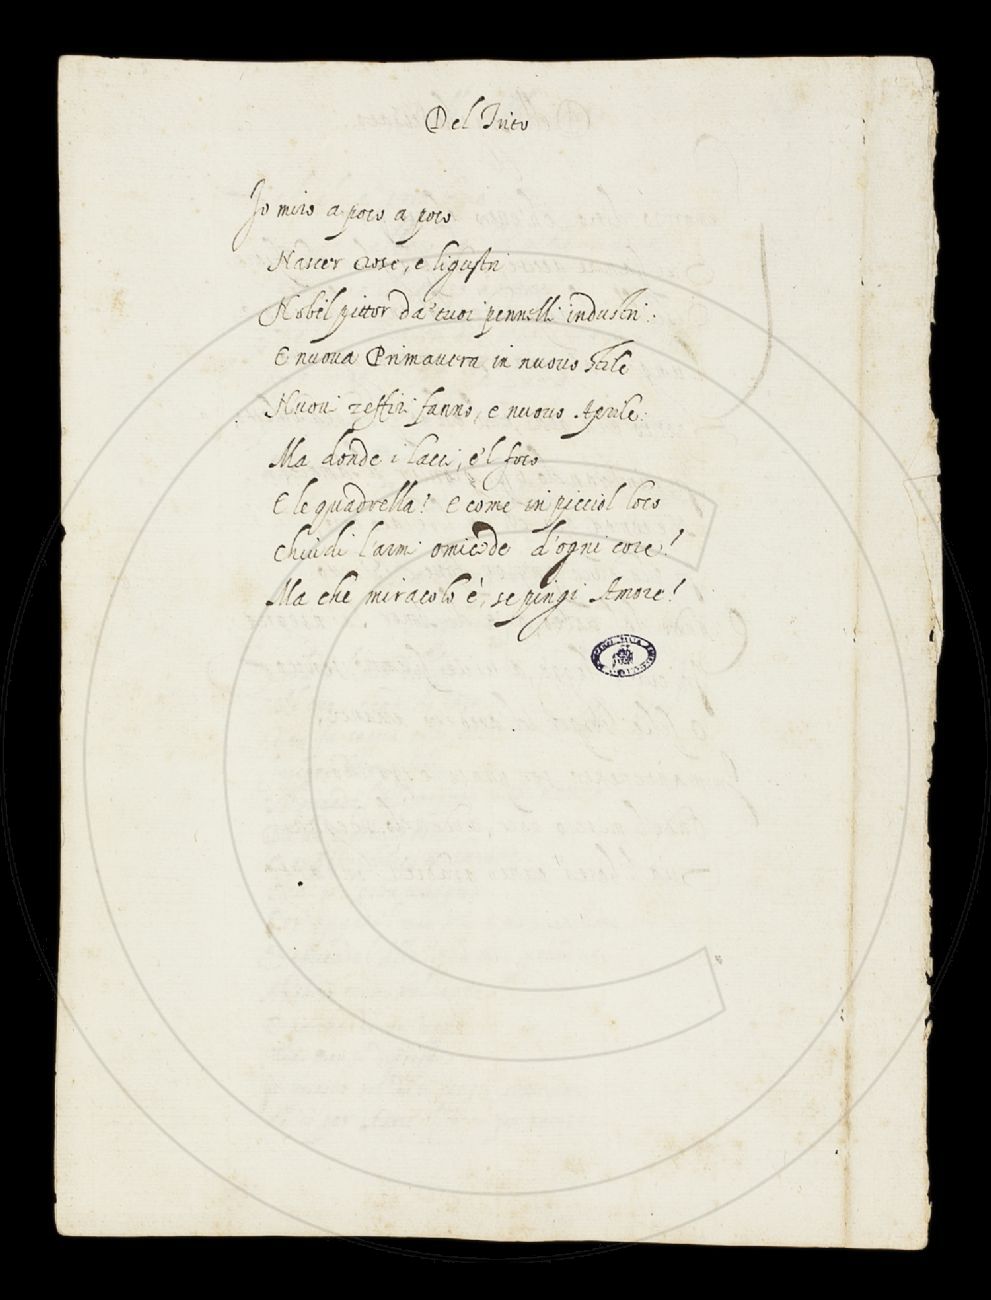 Del
Io miro a poco a poco
Nascer Rose, e ligustri
Nobil pittor da' tuoi pennelli industri:
E nuova Primavera in nuovo stile
Nuovi zeffiri fanno, e nuovo Aprile:
Ma donde i lacci, e'l foco
E le quadrella! E come in picciol loco
Chiudi l'armi omicide d'ogni core!
Ma che miracolo è, se pingi Amore!